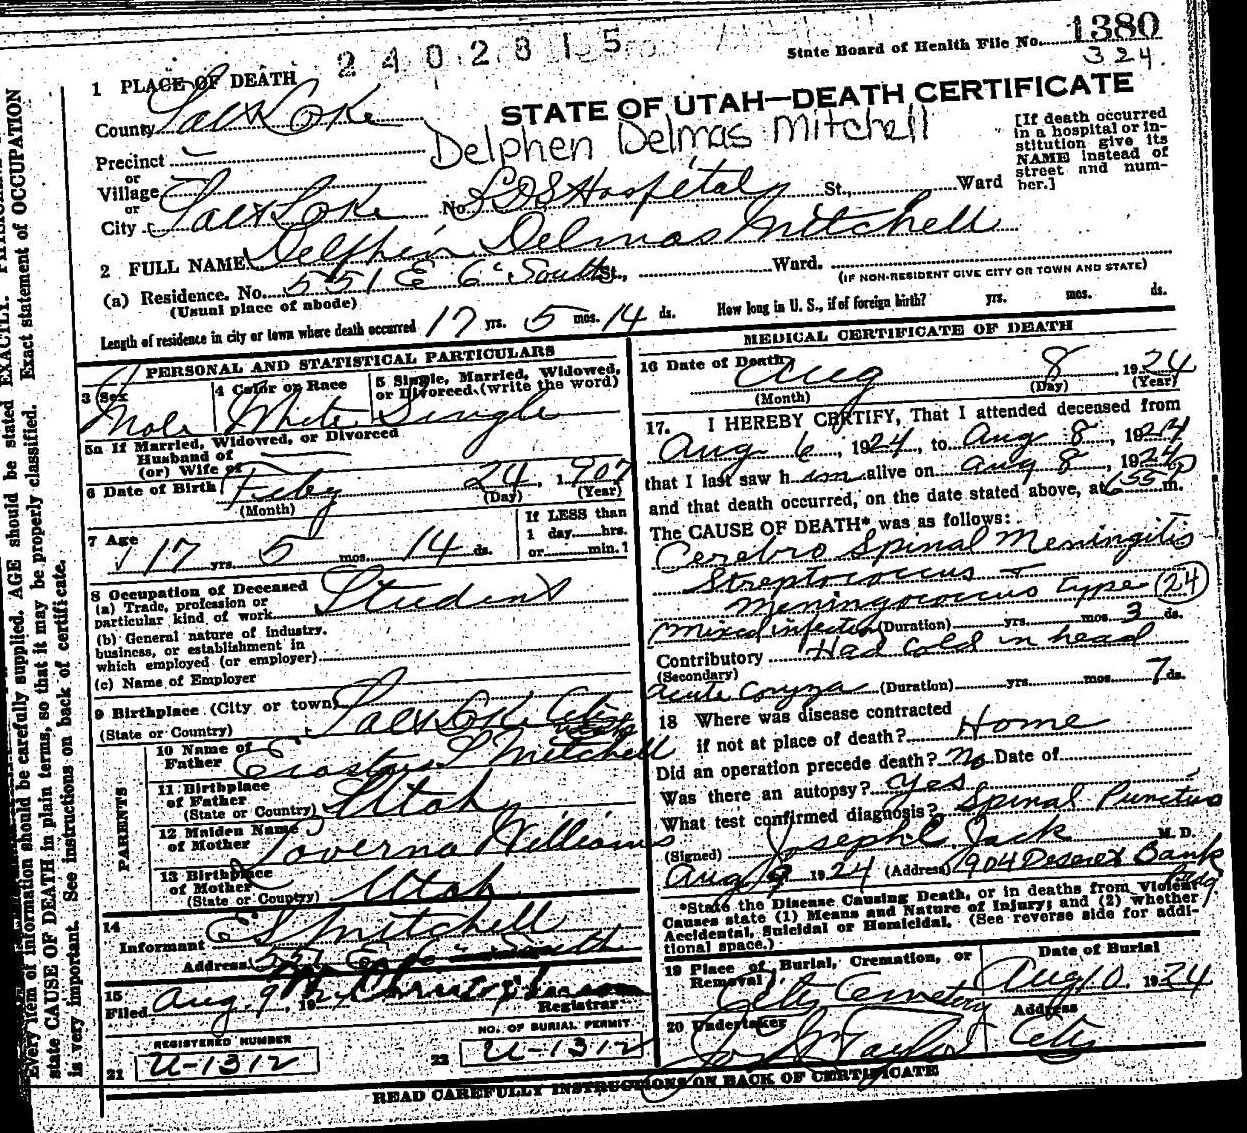 2402815
State Board of Health File No. 1380
324
1 PLACE OF DEATH
STATE OF UTAH—DEATH CERTIFICATE
County Salt Lake
Delphen Delmas Mitchell
[If death occurred in a hospital or institution give its NAME instead of street and number.]
Precinct
or
Village
or
City Salt Lake No. LDS Hospital St., Ward
2 FULL NAME Delphin Delmas Mitchell
(a) Residence. No. 551 E 6" South St., Ward.
(Usual place of abode) (IF NON-RESIDENT GIVE CITY OR TOWN AND STATE)
Length of residence in city or town where death occurred 17 yrs. 5 mos. 14 ds. How long in U. S., if of foreign birth? yrs. mos. ds.
PERSONAL AND STATISTICAL PARTICULARS
3 Sex Male
4 Color or Race White
5 Single, Married, Widowed, or Divorced (write the word) Single
5a If Married, Widowed, or Divorced
Husband of
(or) Wife of
6 Date of Birth Feby 24, 1907
(Month) (Day) (Year)
7 Age 17 yrs. 5 mos. 14 ds.
If LESS than
1 day hrs.
or min.?
8 Occupation of Deceased
(a) Trade, profession or
particular kind of work Student
(b) General nature of industry,
business, or establishment in
which employed (or employer)
(c) Name of Employer
9 Birthplace (City or town) Salt Lake City
(State or Country)
PARENTS
10 Name of Father Erastus S Mitchell
11 Birthplace of Father
(State or Country) Utah
12 Maiden Name of Mother Loverna Williams
13 Birthplace of Mother
(State or Country) Utah
14
Informant E S Mitchell
Address 551 E 6" South
15
Filed Aug. 9 192
Registrar
REGISTERED NUMBER
21 U-1312
NO. OF BURIAL PERMIT
22 U-1312
MEDICAL CERTIFICATE OF DEATH
16 Date of Death Aug 8, 1924
(Month) (Day) (Year)
17. I HEREBY CERTIFY, That I attended deceased from
Aug 6, 1924, to Aug 8, 1924
that I last saw him alive on Aug 8, 1924
and that death occurred, on the date stated above, at 6 55 p m.
The CAUSE OF DEATH* was as follows:
Cerebro Spinal Meningitis
Streptococcus +
Meningococcus type (24)
Mixed infection (Duration) yrs. mos. 3 ds.
Contributory Had Cold in head
(Secondary)
Acute Coryza (Duration) yrs. mos. 7 ds.
18 Where was disease contracted
if not at place of death? Home
Did an operation precede death? No Date of
Was there an autopsy? Yes
What test confirmed diagnosis? Spinal Puncture
(Signed) Joseph E Jack M. D.
Aug 9 1924 (Address) 904 Deseret Bank
Bldg
*State the Disease Causing Death, or in deaths from Violent
Causes state (1) Means and Nature of Injury; and (2) whether
Accidental, Suicidal or Homicidal. (See reverse side for additional space.)
19 Place of Burial, Cremation, or Removal City Cemetery
Date of Burial Aug 10, 1924
20 Undertaker Jos Wm Taylor
Address City
READ CAREFULLY INSTRUCTIONS ON BACK OF CERTIFICATE
Every item of information should be carefully supplied. AGE should be stated EXACTLY.
state CAUSE OF DEATH in plain terms, so that it may be properly classified. Exact statement of OCCUPATION
is very important. See instructions on back of certificate.